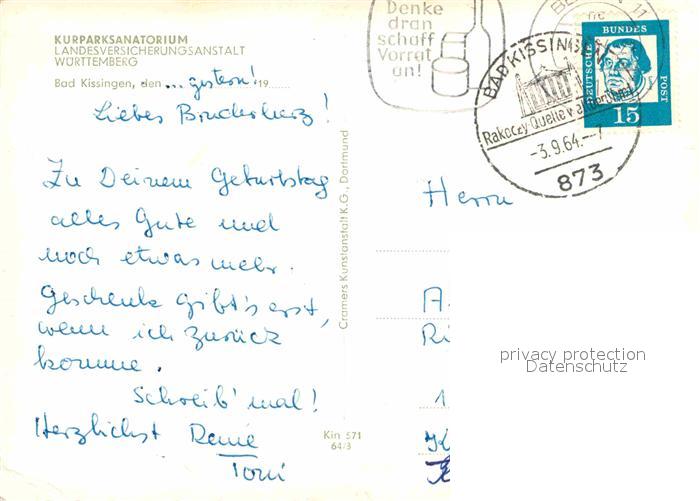 KURPARKSANATORIUM
LANDESVERSICHERUNGSANSTALT
WÜRTTEMBERG
Bad Kissingen, den ... gestern! 19
Liebes Bruderherz!
Zu Deinem Geburtstag
alles Gute und
noch etwas mehr.
Geschenk gibt's erst,
wenn ich zurück
komme.
Schreib' mal!
Herzlichst Deine
Toni
Cramers Kunstanstalt K.G., Dortmund
Kin 571
64/3
Denke
dran
schaff
Vorrat
an!
BAD KISSINGEN
Rakoczy-Quelle
-3.9.64.--7
873
DEUTSCHE BUNDES POST
15
Herrn
A.
Ri
1
privacy protection
Datenschutz